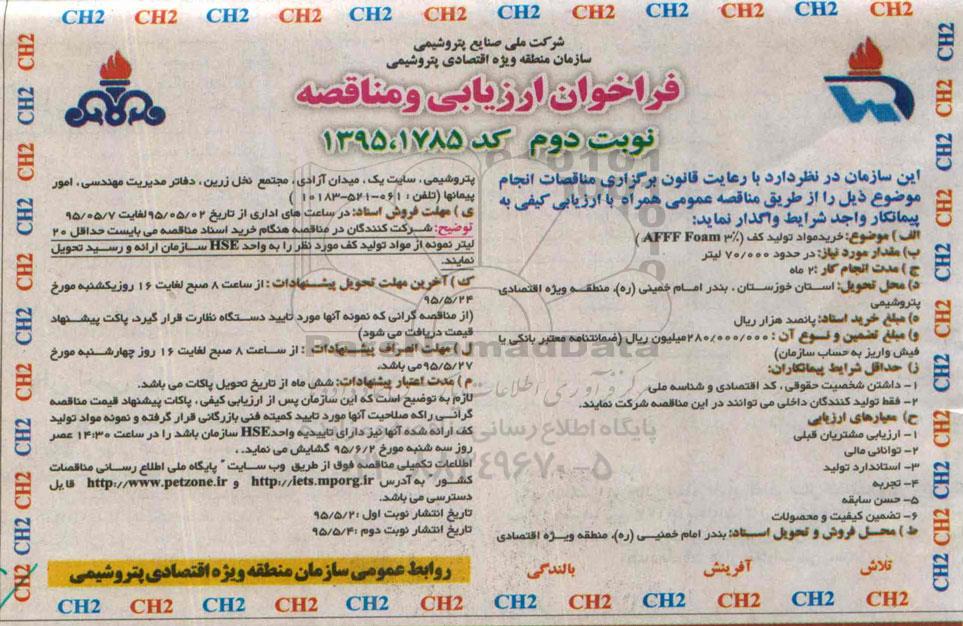 CH2 CH2 CH2 CH2 CH2 CH2 CH2 CH2 CH2 CH2 CH2 CH2
شرکت ملی صنایع پتروشیمی
سازمان منطقه ویژه اقتصادی پتروشیمی
فراخوان ارزیابی ومناقصه
نوبت دوم کد ۱۳۹۵،۱۷۸۵
این سازمان در نظردارد با رعایت قانون برگزاری مناقصات انجام
موضوع ذیل را از طریق مناقصه عمومی همراه با ارزیابی کیفی به
پیمانکار واجد شرایط واگذار نماید:
الف ) موضوع: خریدمواد تولید کف (AFFF Foam ۳٪)
ب) مقدار مورد نیاز: در حدود ۷۰/۰۰۰ لیتر
ج ) مدت انجام کار: ۲ ماه
د) محل تحویل: استان خوزستان ، بندر امام خمینی (ره)، منطقه ویژه اقتصادی
پتروشیمی
ه) مبلغ خرید اسناد: پانصد هزار ریال
و) مبلغ تضمین و نوع آن : ۲۸۰/۰۰۰/۰۰۰میلیون ریال (ضمانتنامه معتبر بانکی یا
فیش واریز به حساب سازمان)
ز) حداقل شرایط پیمانکاران:
۱- داشتن شخصیت حقوقی ، کد اقتصادی و شناسه ملی
۲- فقط تولید کنندگان داخلی می توانند در این مناقصه شرکت نمایند.
ح) معیارهای ارزیابی
۱- ارزیابی مشتریان قبلی
۲- توانائی مالی
۳- استاندارد تولید
۴- تجربه
۵- حسن سابقه
۶- تضمین کیفیت و محصولات
ط ) محل فروش و تحویل اسناد: بندر امام خمینی (ره)، منطقه ویژه اقتصادی
پتروشیمی ، سایت یک ، میدان آزادی ، مجتمع نخل زرین ، دفاتر مدیریت مهندسی ، امور
پیمانها (تلفن : ۰۶۱-۵۲۱-۱۰۱۸۳ )
ی ) مهلت فروش اسناد: در ساعت های اداری از تاریخ ۹۵/۰۵/۰۲ لغایت ۹۵/۰۵/۷
توضیح: شرکت کنندگان در مناقصه هنگام خرید اسناد مناقصه می بایست حداقل ۲۰
لیتر نمونه از مواد تولید کف مورد نظر را به واحد HSE سازمان ارائه و رسید تحویل
نمایند.
ک ) آخرین مهلت تحویل پیشنهادات : از ساعت ۸ صبح لغایت ۱۶ روزیکشنبه مورخ
۹۵/۵/۲۴
(از مناقصه گرانی که نمونه آنها مورد تایید دستگاه نظارت قرار گیرد، پاکت پیشنهاد
قیمت دریافت می شود)
ل ) مهلت انصراف پیشنهادات : از ساعت ۸ صبح لغایت ۱۶ روز چهارشنبه مورخ
۹۵/۵/۲۷می باشد.
م ) مدت اعتبار پیشنهادات: شش ماه از تاریخ تحویل پاکات می باشد.
لازم به توضیح است که این سازمان پس از ارزیابی کیفی ، پاکات پیشنهاد قیمت مناقصه
گرانی راکه صلاحیت آنها مورد تایید کمیته فنی بازرگانی قرار گرفته و نمونه مواد تولید
کف ارائه شده آنها نیز دارای تاییدیه واحدHSE سازمان باشد را در ساعت ۱۴:۳۰ عصر
روز سه شنبه مورخ ۹۵/۶/۲ گشایش می نماید. .
اطلاعات تکمیلی مناقصه فوق از طریق وب سایت " پایگاه ملی اطلاع رسانی مناقصات
کشور" به آدرس http://iets.mporg.ir و http://www.petzone.ir قابل
دسترسی می باشد.
تاریخ انتشار نوبت اول :۹۵/۵/۲
تاریخ انتشار نوبت دوم :۹۵/۵/۴
تلاش آفرینش بالندگی
روابط عمومی سازمان منطقه ویژه اقتصادی پتروشیمی
CH2 CH2 CH2 CH2 CH2 CH2 CH2 CH2 CH2 CH2 CH2 CH2
ParsNamadData
پایگاه اطلاع رسانی